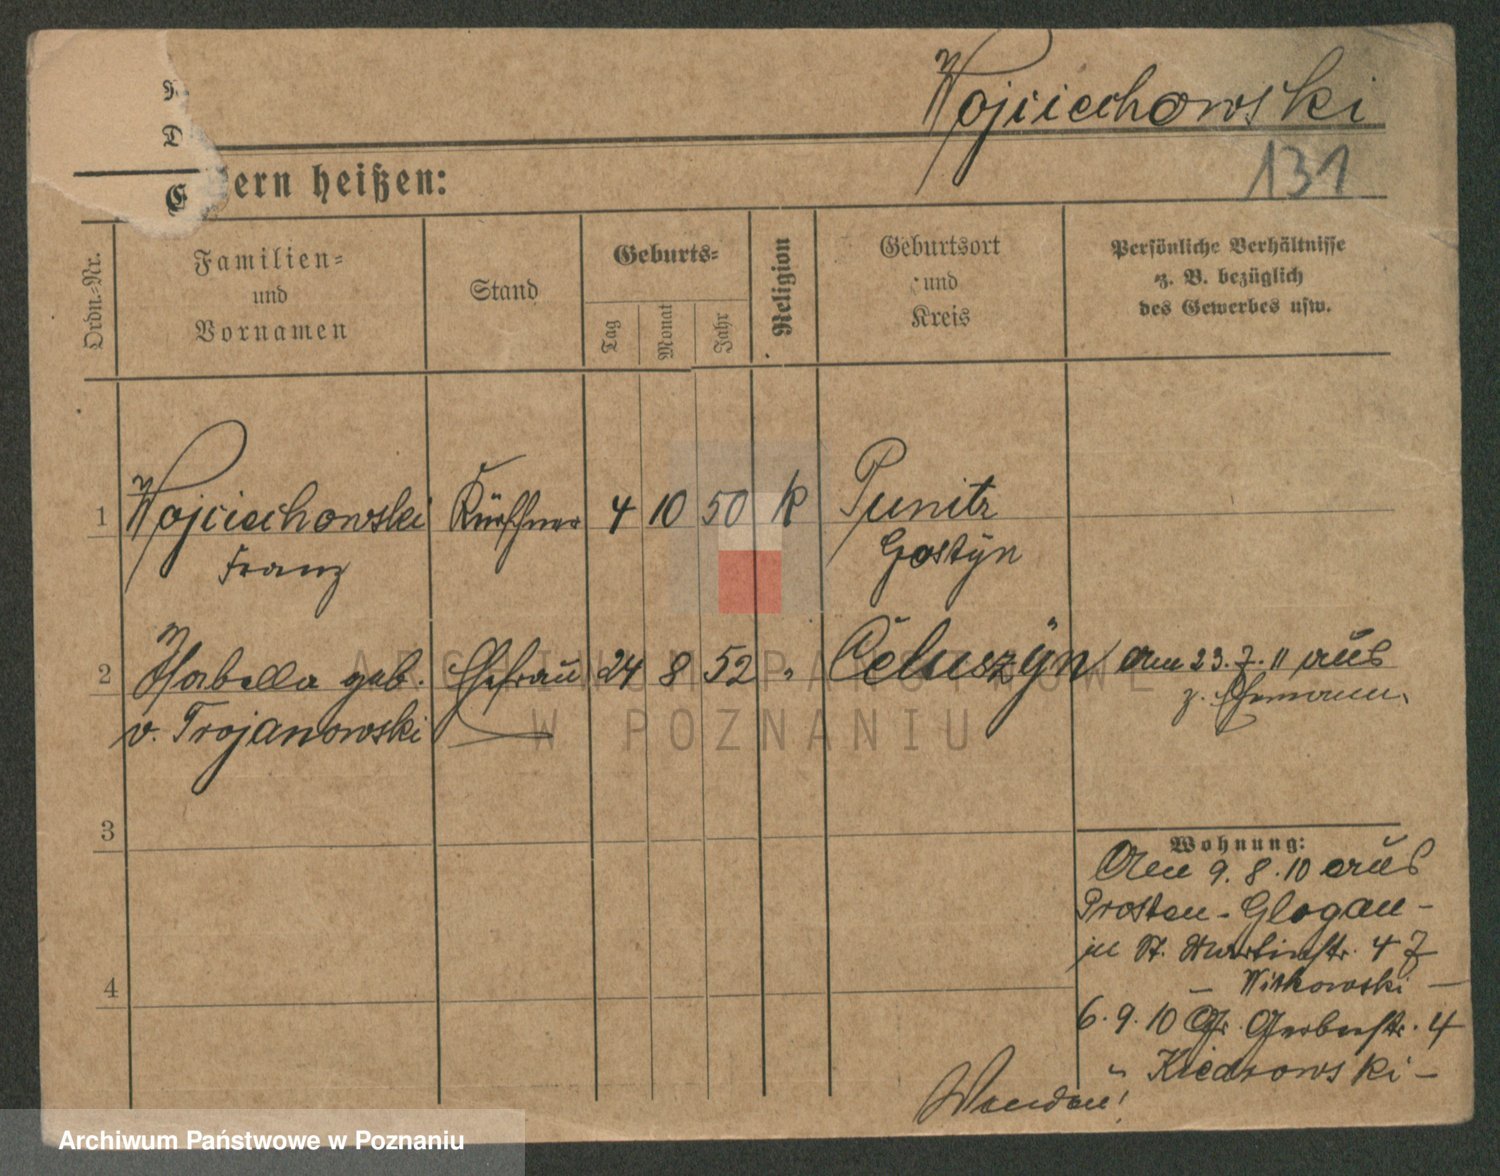 Wojciechowski
131
D
Eltern heißen:
Ordn.-Nr.
Familien-
und
Vornamen
Stand
Geburts-
Tag
Monat
Jahr
Religion
Geburtsort
und
Kreis
Persönliche Verhältnisse
z. B. bezüglich
des Gewerbes usw.
1 Wojciechowski Kürschner 4 10 50 k Punitz
Franz Gostyn
2 Isabella geb. Ehefrau 24 8 52 " Celuszyn Am 23. 7. 11 aus
v. Trojanowski z. Ehemann
3
4
Wohnung:
Am 9. 8. 10 aus
Glogau -
in St. Martinstr. 47
- Witkowski -
6. 9. 10 Gr. Gerberstr. 4
" Kiedrowski -
Wenden!
ARCHIWUM PAŃSTWOWE
W POZNANIU
Archiwum Państwowe w Poznaniu